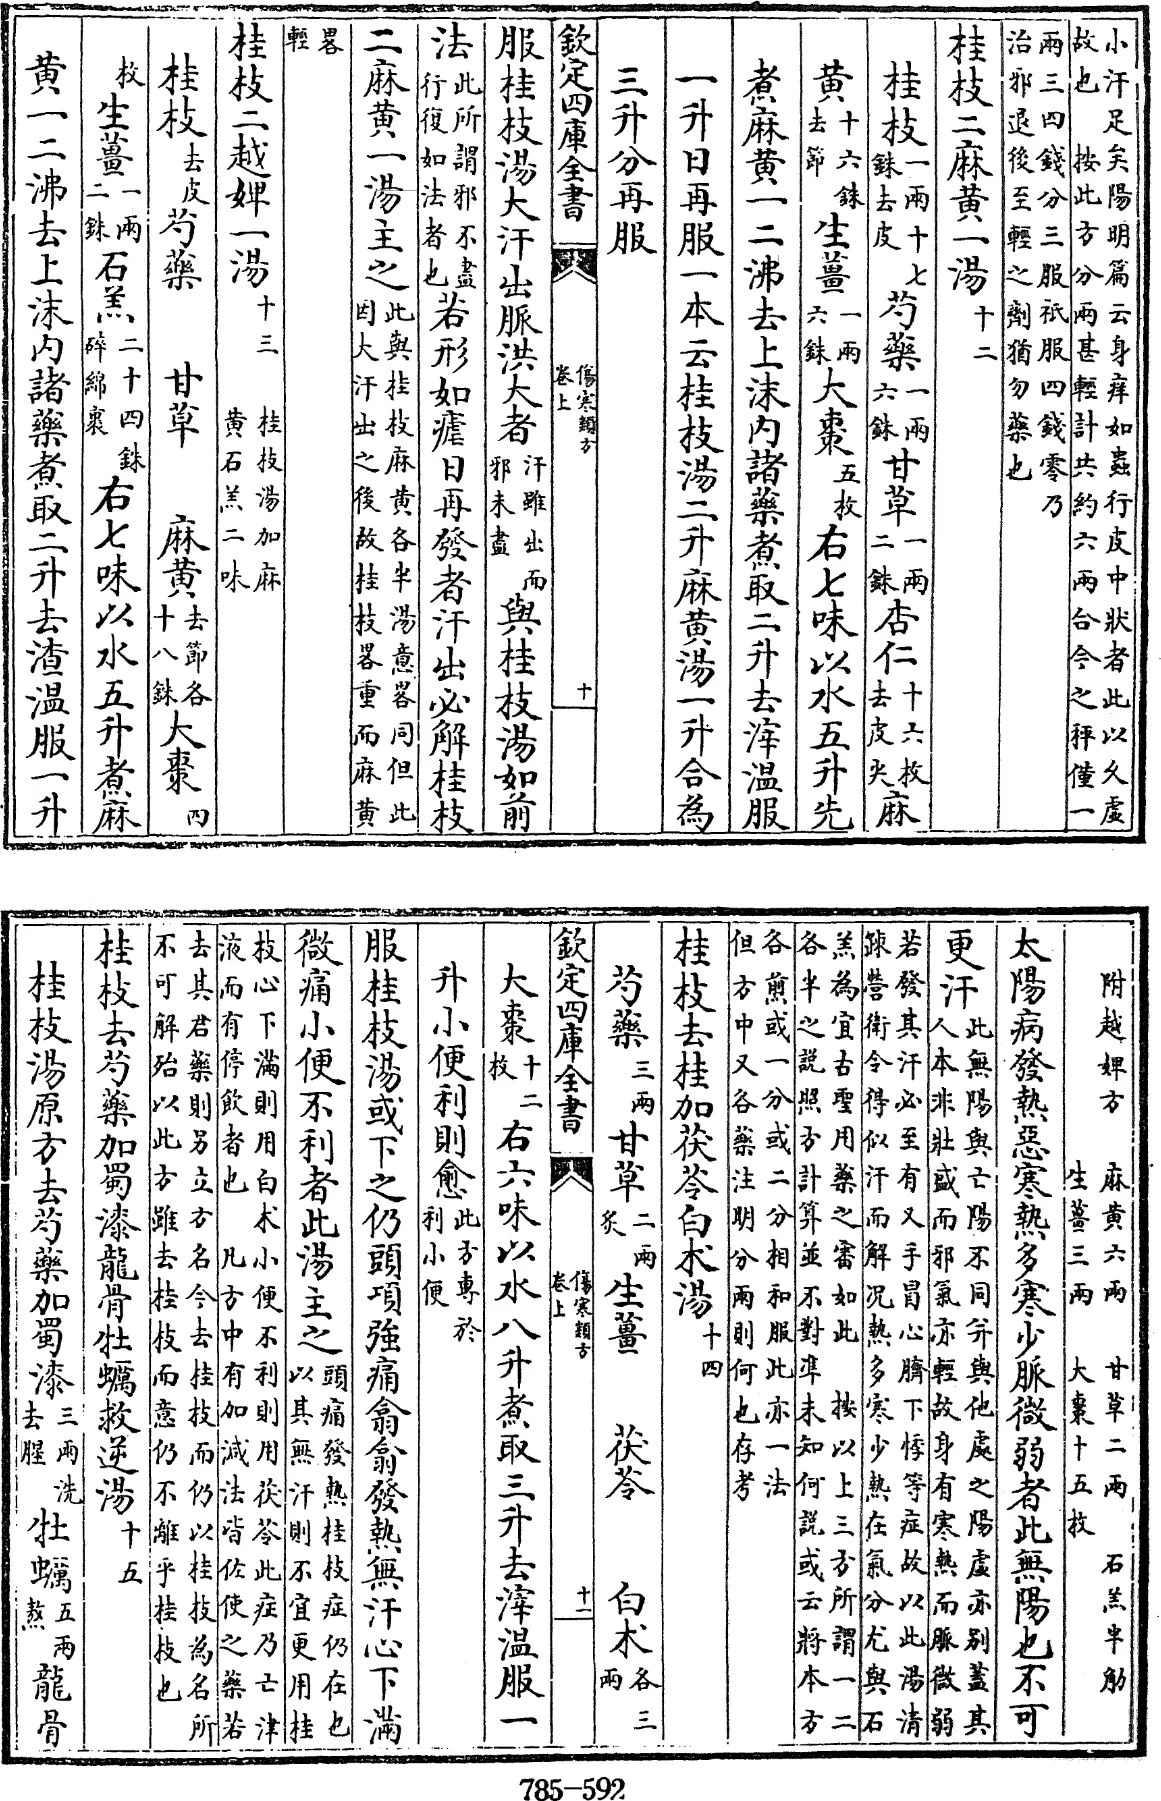 小汗足矣陽明篇云身痒如蟲行皮中狀者此以久虛
故也　按此方分兩甚輕計共約六兩合今之秤僅一
兩三四錢分三服祇服四錢零乃
治邪退後至輕之劑猶勿藥也
桂枝二麻黄一湯十二
桂枝一兩十七銖去皮芍藥一兩六銖甘草一兩二銖杏仁十六枚去皮尖麻
黄十六銖去節生薑一兩六銖大棗五枚右七味以水五升先
煮麻黄一二沸去上沫内諸藥煮取二升去滓温服
一升日再服一本云桂枝湯二升麻黄湯一升合為
三升分再服
欽定四庫全書　傷寒類方卷上　十
服桂枝湯大汗出脈洪大者汗雖出而邪未盡與桂枝湯如前
法此所謂邪不盡行復如法者也若形如瘧日再發者汗出必解桂枝
二麻黄一湯主之此與桂枝麻黄各半湯意畧同但此因大汗出之後故桂枝畧重而麻黄
畧輕
桂枝二越婢一湯十三　桂枝湯加麻黄石羔二味
桂枝去皮芍藥　甘草　麻黄去節各十八銖大棗四
枚生薑一兩二銖石羔二十四銖碎綿裹右七味以水五升煮麻
黄一二沸去上沫内諸藥煮取二升去渣温服一升
附越婢方　麻黄六兩　甘草二兩　石羔半觔
生薑三兩　大棗十五枚
太陽病發熱惡寒熱多寒少脈微弱者此無陽也不可
更汗此無陽與亡陽不同并與他處之陽虛亦别葢其人本非壯盛而邪氣亦輕故身有寒熱而脈微弱
若發其汗必至有叉手冒心臍下悸等症故以此湯清
疎營衛令得似汗而解况熱多寒少熱在氣分尤與石
羔為宜古聖用藥之審如此　按以上三方所謂一二
各半之説照方計算並不對凖未知何説或云將本方
各煎或一分或二分相和服此亦一法
但方中又各藥注明分兩則何也存考
桂枝去桂加茯苓白朮湯十四
芍藥三兩甘草二兩炙生薑　茯苓　白朮各三兩
欽定四庫全書　傷寒類方卷上　十一
大棗十二枚右六味以水八升煮取三升去滓温服一
升小便利則愈此方專於利小便
服桂枝湯或下之仍頭項強痛翕翕發熱無汗心下滿
微痛小便不利者此湯主之頭痛發熱桂枝症仍在也以其無汗則不宜更用桂
枝心下滿則用白朮小便不利則用茯苓此症乃亡津
液而有停飲者也　凡方中有加減法皆佐使之藥若
去其君藥則另立方名今去桂枝而仍以桂枝為名所
不可解殆以此方雖去桂枝而意仍不離乎桂枝也
桂枝去芍藥加蜀漆龍骨牡蠣救逆湯十五
桂枝湯原方去芍藥加蜀漆三兩洗去腥牡蠣五兩熬龍骨
785-592